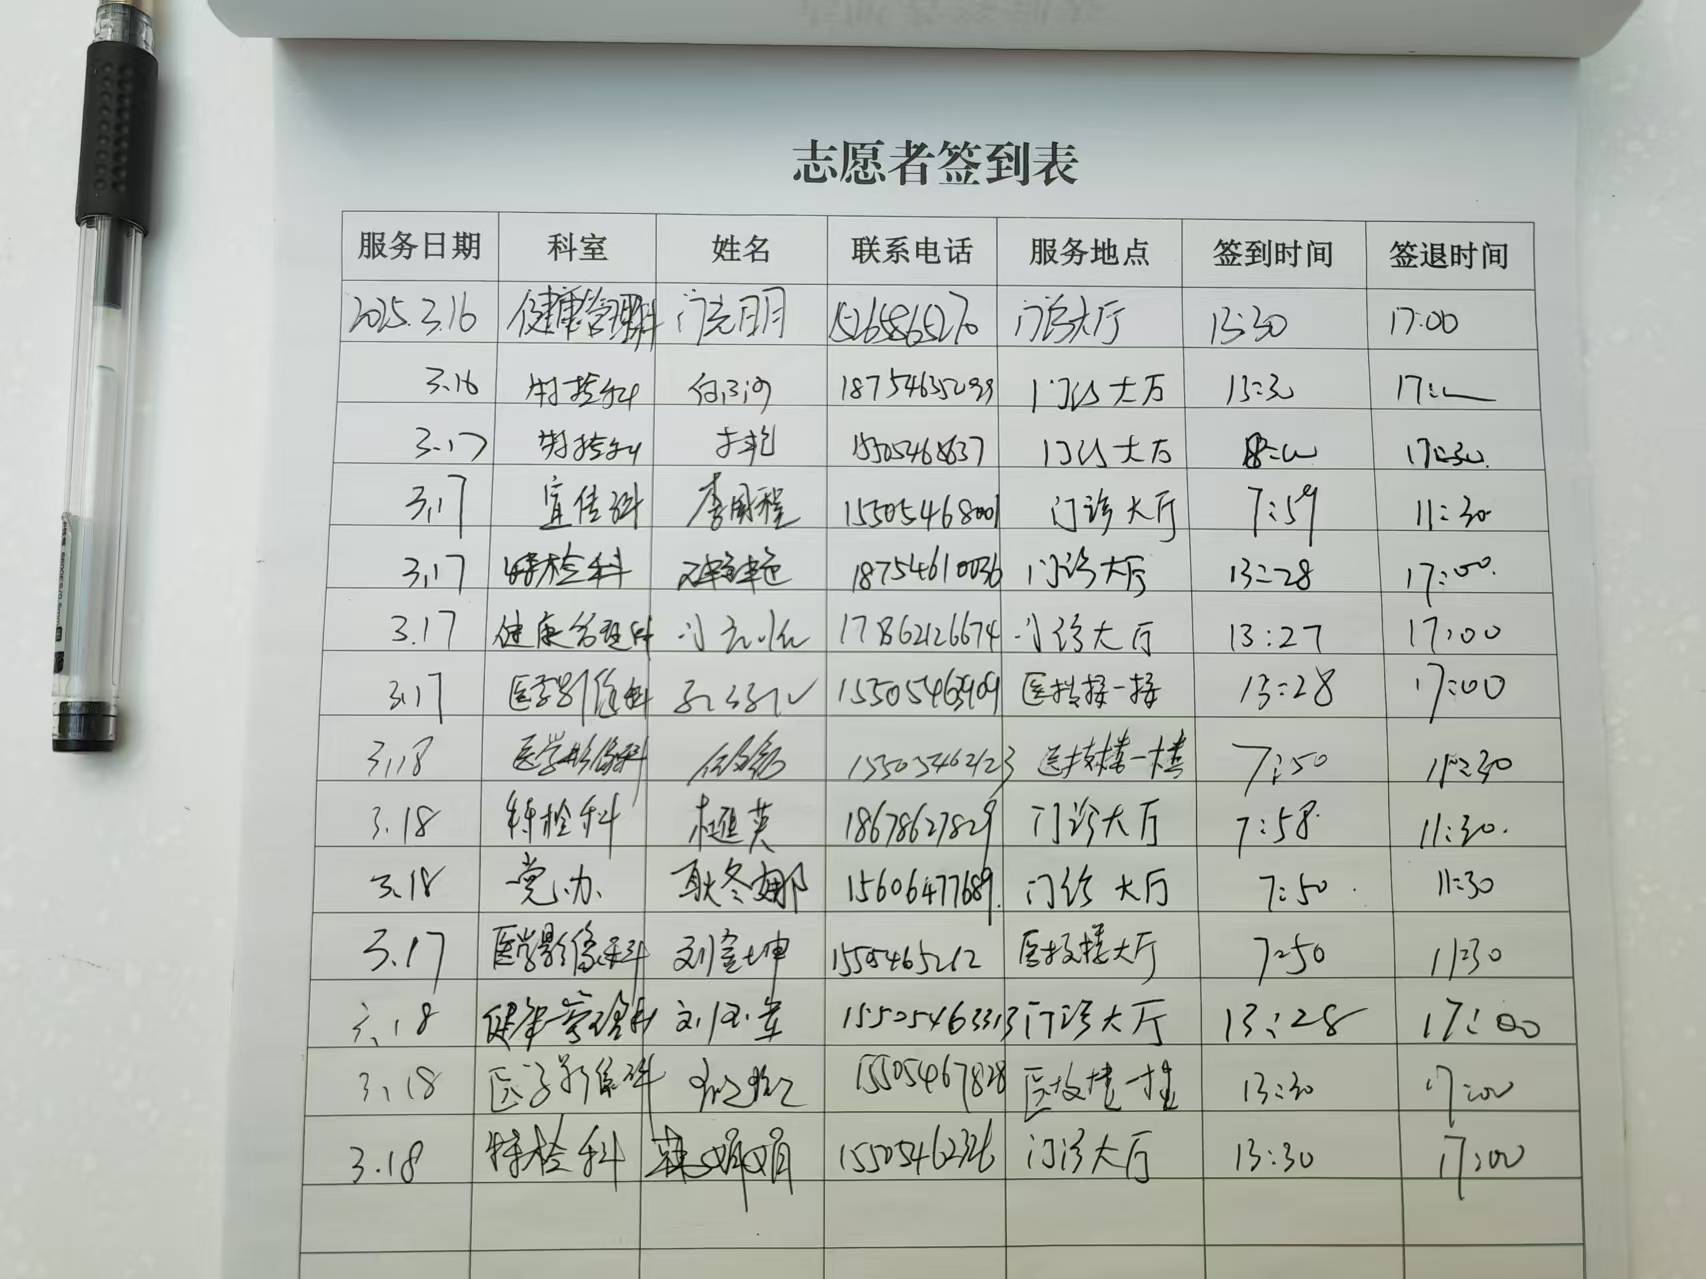 志愿者签到表
服务日期 科室 姓名 联系电话 服务地点 签到时间 签退时间
2025.3.16 健康管理科 门诊大厅 13:30 17:00
3.16 特检科 门诊大厅 13:30
3.17 特检科 门诊大厅 17:30
3.17 宣传科 李国程 15505468001 门诊大厅 7:59 11:30
3.17 特检科 18754610036 门诊大厅 13:28 17:00.
3.17 健康管理科 17862126674 门诊大厅 13:27 17:00
3.17 医学影像科 医技楼一楼 13:28 17:00
3.18 医学影像科 15505462123 医技楼一楼 7:50 11:30
3.18 特检科 18678627829 门诊大厅 7:58. 11:30.
3.18 党办 耿冬娜 15606477689. 门诊大厅 7:50. 11:30
3.17 医学影像科 刘金坤 医技楼大厅 7:50 11:30
3.18 健康管理科 门诊大厅 13:28 17:00
3.18 医学影像科 15505467828 医技楼一楼 13:30 17:00
3.18 特检科 15505462326 门诊大厅 13:30 17:00